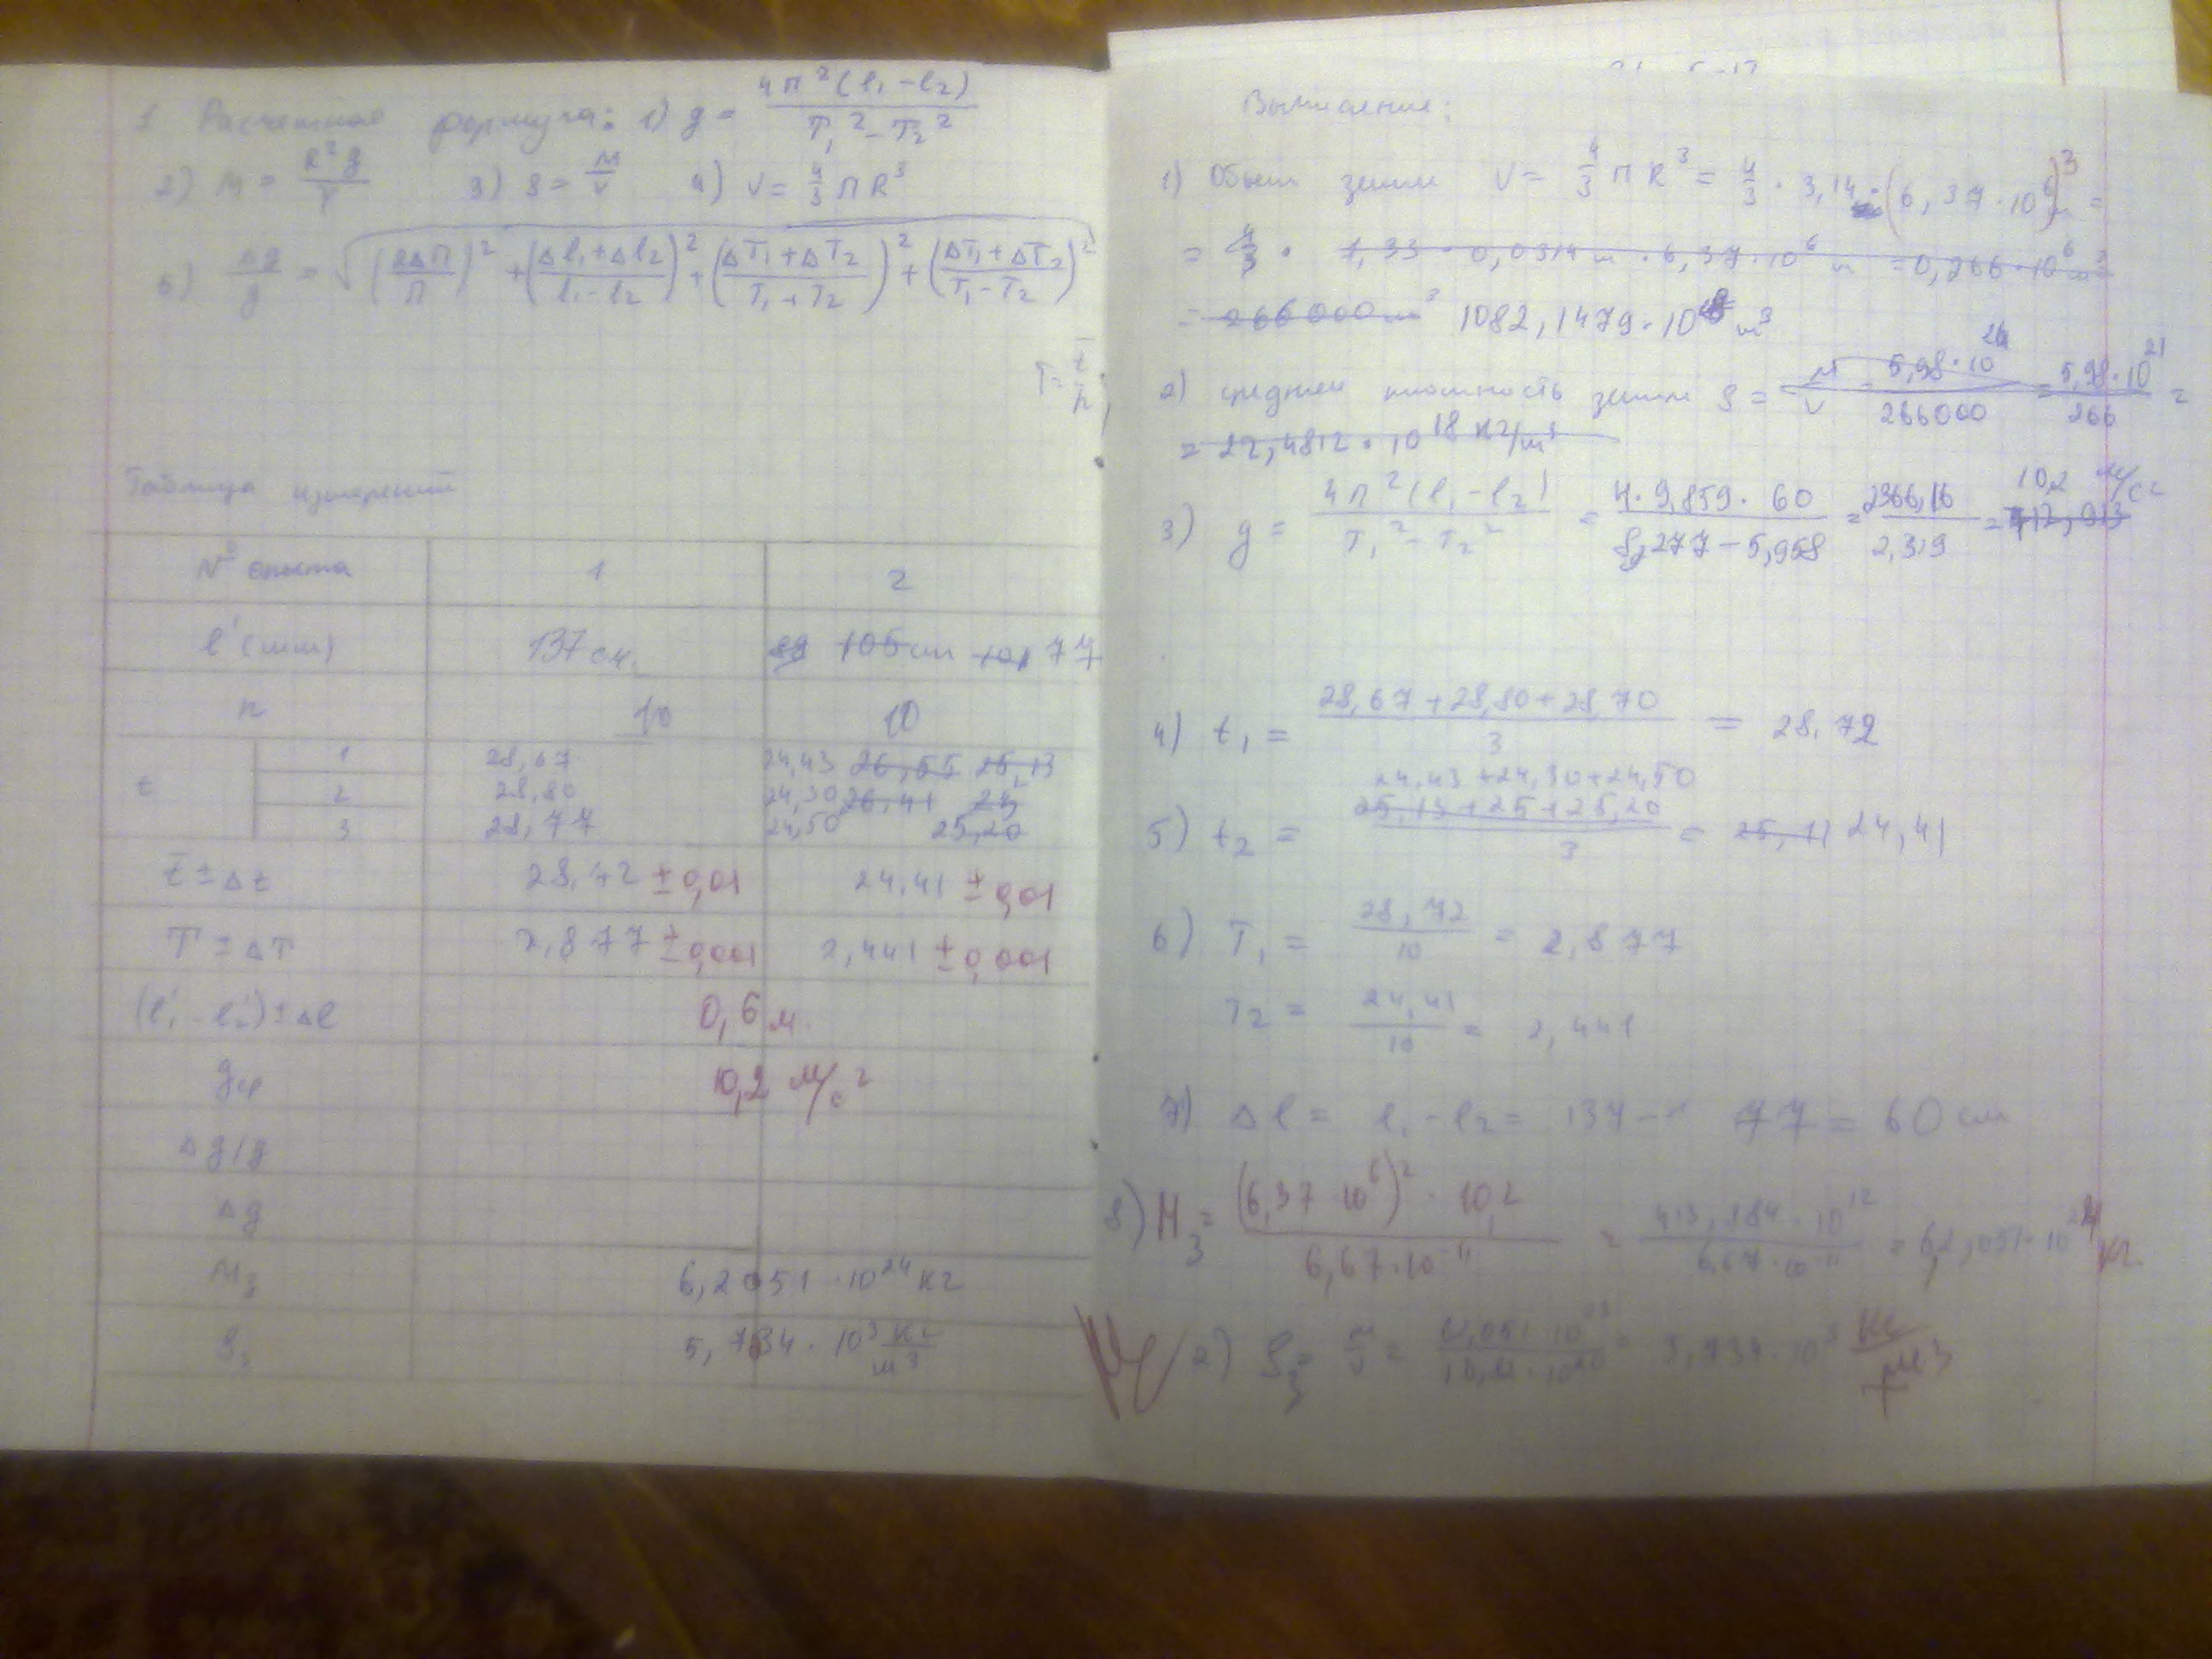 1 Расчетная формула: 1) g = 4π²(l₁-l₂) / T₁²-T₂²
2) M = R²g / γ 3) ρ = M/V 4) V = 4/3 π R³
5) Δg/g = √((2Δπ/π)² + (Δl₁+Δl₂ / l₁-l₂)² + (ΔT₁+ΔT₂ / T₁+T₂)² + (ΔT₁+ΔT₂ / T₁-T₂)²
T = t̄/n
Таблица измерений
№ опыта 1 2
l' (мм) 137 см. 105 см 101 77
n 10 10
t 1 28,67 24,43 26,55 25,13
2 28,80 24,30 26,41 25
3 28,77 24,50 25,20
t̄ ± Δt 28,72 ± 0,01 24,41 ± 0,01
T ± ΔT 2,877 ± 0,001 2,441 ± 0,001
(l'₁ - l'₂) ± Δl 0,6 м.
gср 10,2 м/с²
Δg/g
Δg
M₃ 6,2051 · 10²⁴ кг
ρ₃ 5,734 · 10³ кг/м³
Вычисление:
1) Объем земли V = 4/3 π R³ = 4/3 · 3,14 · (6,37 · 10⁶)³ м =
= 4/3 · 1,33 · 0,0314 м · 6,37 · 10⁶ м = 0,266 · 10⁶ м³
= 266000 м³ 1082,1479 · 10¹⁸ м³
2) средняя плотность земли ρ = M/V = 5,98 · 10²⁴ / 266000 = 5,98 · 10²¹ / 266 =
= 22,4812 · 10¹⁸ кг/м³
3) g = 4π²(l₁-l₂) / T₁²-T₂² = 4 · 9,859 · 60 / 8,277 - 5,958 = 2366,16 / 2,319 = 10,2 м/с²
4) t₁ = 28,67 + 28,80 + 28,70 / 3 = 28,72
24,43 + 24,30 + 24,50
5) t₂ = 25,13 + 25 + 25,20 / 3 = 25,11 24,41
6) T₁ = 28,72 / 10 = 2,877
T₂ = 24,41 / 10 = 2,441
7) Δl = l₁ - l₂ = 137 - 77 = 60 см
8) M₃ = (6,37 · 10⁶)² · 10,2 / 6,67 · 10⁻¹¹ = 413,884 · 10¹² / 6,67 · 10⁻¹¹ = 6,2,051 · 10²⁴ кг
2) ρ₃ = M/V = 5,734 · 10³ кг/м³